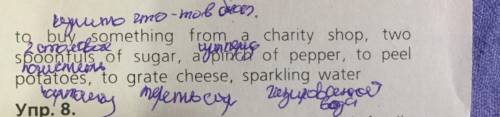 купить что-то в
to buy something from a charity shop, two
2 столовые щепотка
spoonfuls of sugar, a pinch of pepper, to peel
почистить
potatoes, to grate cheese, sparkling water
картошку тереть сыр газированная
вода
Упр. 8.